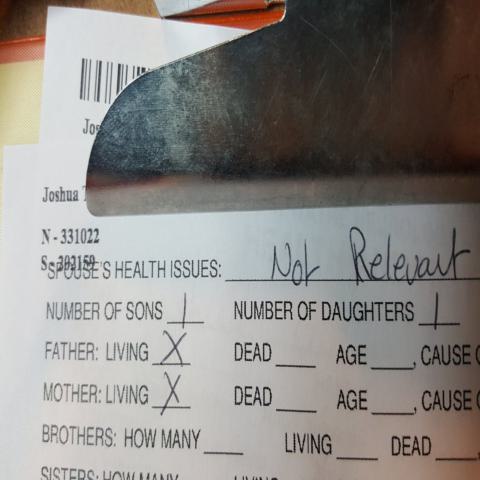 Jos
Joshua
N - 331022
S - 202159
SPOUSE'S HEALTH ISSUES: Not Relevant
NUMBER OF SONS 1 NUMBER OF DAUGHTERS 1
FATHER: LIVING X DEAD ___ AGE ___, CAUSE
MOTHER: LIVING X DEAD ___ AGE ___, CAUSE
BROTHERS: HOW MANY ___ LIVING ___ DEAD ___,
SISTERS: HOW MANY LIVING